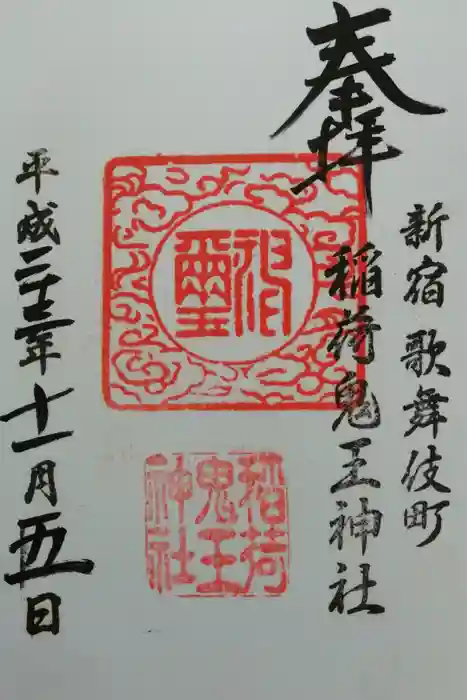 奉拝
新宿歌舞伎町
稲荷鬼王神社
神璽
稲荷
鬼王
神社
平成二十三年十一月五日